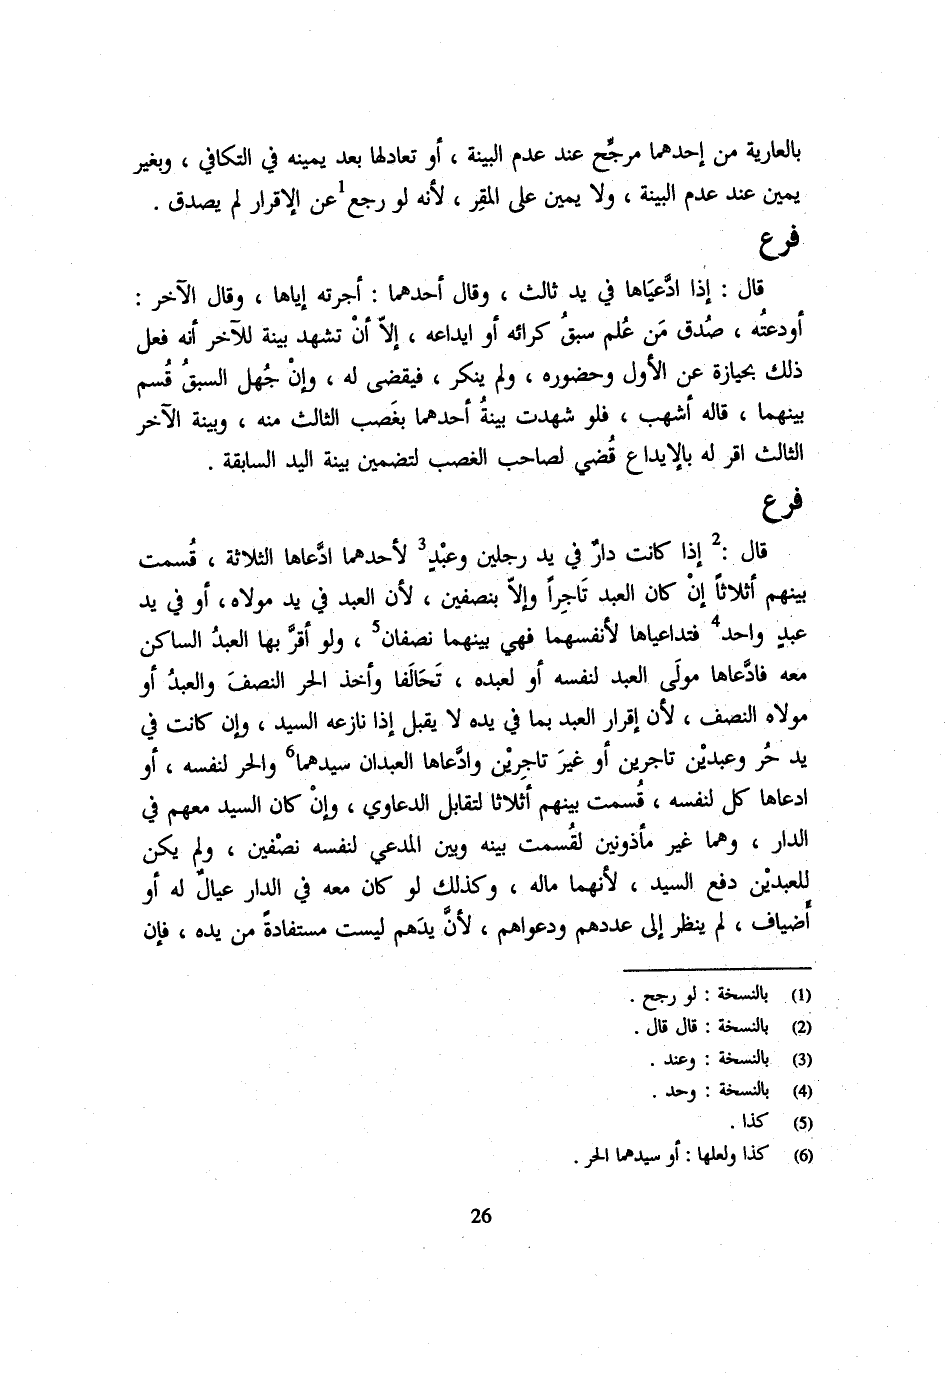 بالعارية من إحدهما مرجِّح عند عدم البينة ، أو تعادلها بعد يمينه في التكافي ، وبغير
يمين عند عدم البينة ، ولا يمين على المقِر ، لأنه لو رجع1 عن الإقرار لم يصدق .
فرع
قال : إذا ادَّعيَاها في يد ثالث ، وقال أحدهما : أجرته إياها ، وقال الآخر :
أودعتُه ، صُدق مَن عُلم سبقُ كرائه أو ايداعه ، إلاّ أنْ تشهد بينة للآخر أنه فعل
ذلك بحيازة عن الأول وحضوره ، ولم ينكر ، فيقضى له ، وإنْ جُهل السبقُ قُسم
بينهما ، قاله أشهب ، فلو شهدت بينةُ أحدهما بغَصب الثالث منه ، وبينة الآخر
الثالث اقر له بالإيداع قُضي لصاحب الغصب لتضمين بينة اليد السابقة .
فرع
قال :2 إذا كانت دارٌ في يد رجلين وعبْدٍ3 لأحدهما ادَّعاها الثلاثة ، قُسمت
بينهم أثلاثاً إنْ كان العبد تَاجِراً وإلاّ بنصفين ، لأن العبد في يد مولاه، أو في يد
عبدٍ واحد4 فتداعياها لأنفسهما فهي بينهما نصفان5 ، ولو أقرَّ بها العبدُ الساكن
معه فادَّعاها مولَى العبد لنفسه أو لعبده ، تَحَالَفا وأخذ الحر النصفَ والعبدُ أو
مولاه النصف ، لأن إقرار العبد بما في يده لا يقبل إذا نازعه السيد ، وإن كانت في
يد حُر وعبديْن تاجرين أو غيرَ تاجِريْن وادَّعاها العبدان سيدهما6 والحر لنفسه ، أو
ادعاها كل لنفسه ، قُسمت بينهم أثلاثا لتقابل الدعاوي ، وإنْ كان السيد معهم في
الدار ، وهما غير مأذونين لقُسمت بينه وبين المدعي لنفسه نصْفين ، ولم يكن
للعبديْن دفع السيد ، لأنهما ماله ، وكذلك لو كان معه في الدار عيالٌ له أو
أضياف ، لم ينظر إلى عددهم ودعواهم ، لأنَّ يدَهم ليست مستفادةً من يده ، فإن
(1) بالنسخة : لو رجح .
(2) بالنسخة : قال قال .
(3) بالنسخة : وعند .
(4) بالنسخة : وحد .
(5) كذا .
(6) كذا ولعلها : أو سيدهما الحر .
26